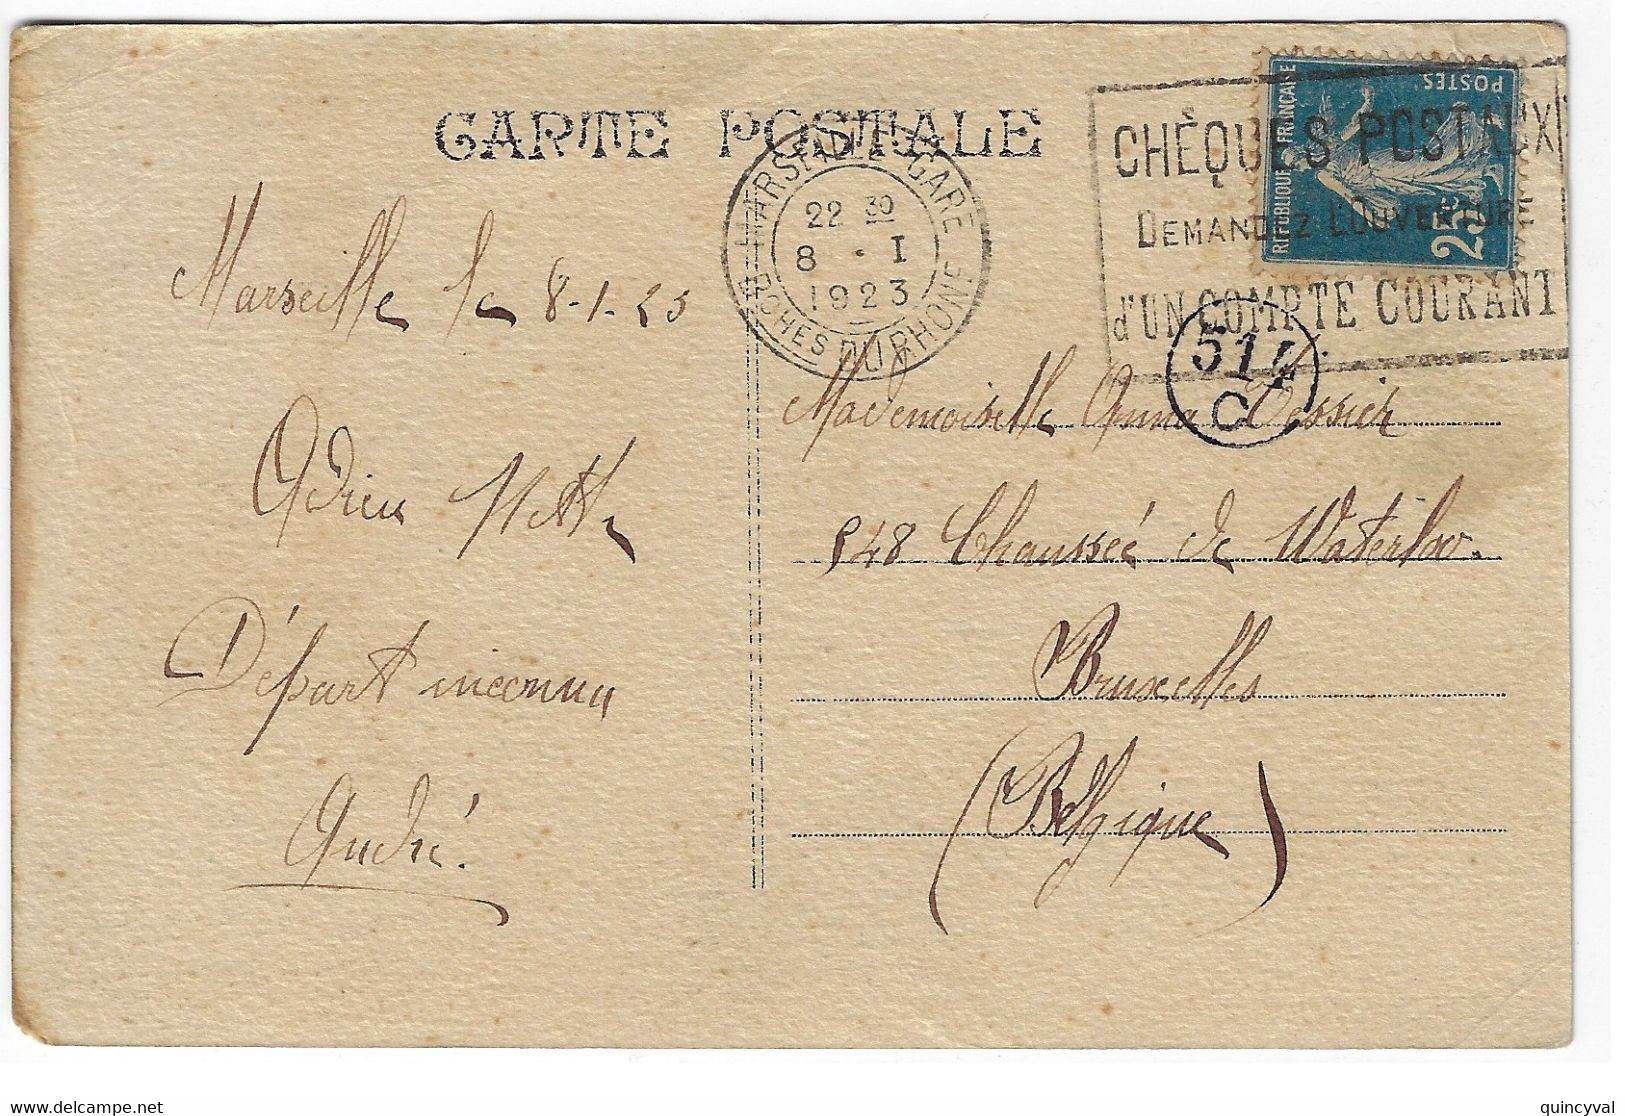 CARTE POSTALE
MARSEILLE GARE
22 30
8 · I
1923
BCHES DU RHONE
CHÈQUES POSTAUX
DEMANDEZ L'OUVERTURE
d'UN COMPTE COURANT
REPUBLIQUE FRANÇAISE
POSTES
25c
514
C
Marseille le 8-1-23
Adieu
Départ inconnu
André.
Mademoiselle Anna Tessier
548 Chaussée de Waterloo.
Bruxelles
(Belgique)
www.delcampe.net
quincyval